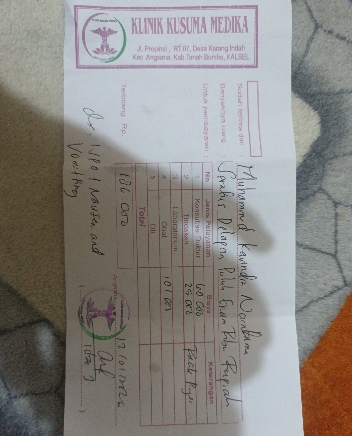 KLINIK KUSUMA MEDIKA
Jl. Propinsi, RT.07, Desa Karang Indah
Kec. Angsana, Kab. Tanah Bumbu, KALSEL
Sudah terima dari : Muhammad
Banyaknya uang : Seratus Delapan Puluh Enam Ribu Rupiah
Untuk pembayaran :
No Jenis Pelayanan Biaya Keterangan
1 Konsultasi Dokter 60 000
2 Tindakan 25 000
3 Laboratorium
4 Obat 101 000
5 Dll
Total
Terbilang Rp. 186 000
Angsana,
Nausea and
Vomitting